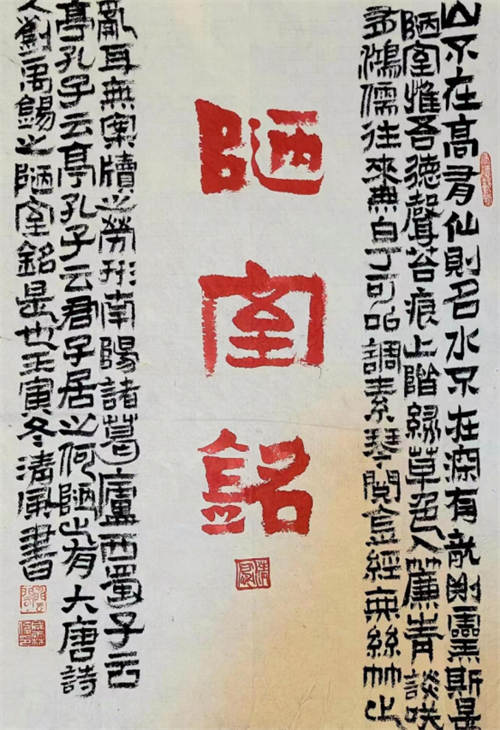 山不在高有仙則名水不在深有龍則靈斯是
陋室惟吾德聲苔痕上階綠草色入簾青談咲
有鴻儒往來無白丁可以調素琴閱金經無絲竹之
陋室銘
亂耳無案牘之勞形南陽諸葛廬西蜀子云
亭孔子云亭孔子云君子居之何陋之有大唐詩
人劉禹錫之陋室銘是也壬寅冬清風書